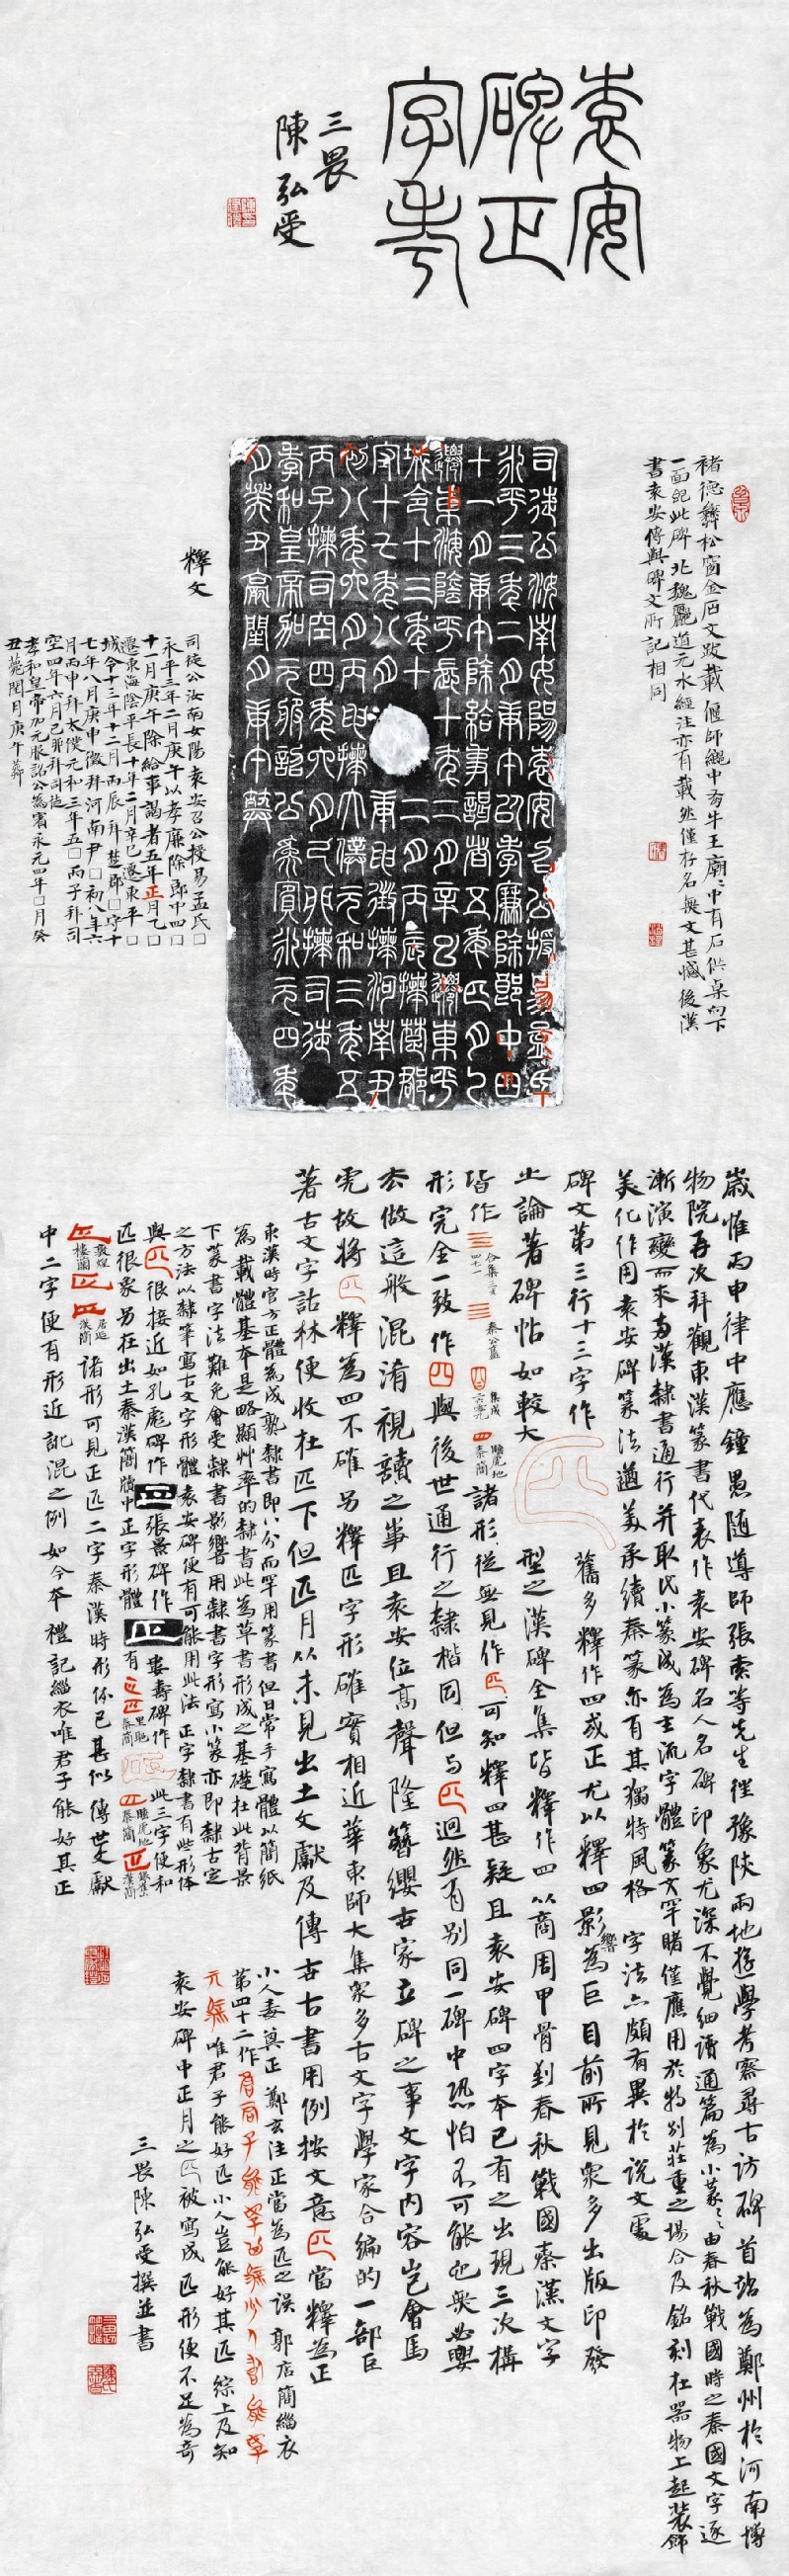 袁安
碑正
字考
三畏
陳弘受
褚德彝松窗金石文跋載偃師鄉中有牛王廟廟中有石供桌向下
一面鉛此碑北魏酈道元水經注亦有載然僅存名無文甚憾後漢
書袁安傳與碑文所記相同
司徒公汝南女陽袁安召公授易孟氏
永平三年二月庚午以孝廉除郎中四
十一月庚午除給事謁者五年正月乙
遷東海陰平長十年二月辛巳遷東平
城令十三年十二月丙辰拜楚郡
守十七年八月庚申徵拜河南尹
初八年六月丙申拜太僕元和三年五
丙子拜司空四年六月己卯拜司徒
孝和皇帝加元服詔公為賓永元四年
月癸丑薨閏月庚午葬
釋文
司徒公汝南女陽袁安召公授易孟氏□
永平三年二月庚午以孝廉除郎中四□
十一月庚午除給事謁者五年正月乙□
遷東海陰平長十年二月辛巳遷東平□
城令十三年十二月丙辰拜楚郡□守十
七年八月庚申徵拜河南尹□初八年六
月丙申拜太僕元和三年五□丙子拜司
空四年六月己卯拜司徒
孝和皇帝加元服詔公為賓永元四年□月癸
丑薨閏月庚午葬
歲惟丙申律中應鐘愚隨導師張索等先生徑豫陝兩地遊學考察尋古訪碑首站為鄭州於河南博
物院再次拜觀東漢篆書代表作袁安碑名人名碑印象尤深不覺細讀通篇為小篆小篆由春秋戰國時之秦國文字逐
漸演變而來為漢隸書通行并取代小篆成為主流字體篆文罕睹僅應用於特別莊重之場合及銘刻在器物上起裝飾
美化作用袁安碑篆法遒美承續秦篆亦有其獨特風格字法亦頗有異於說文處
碑文第三行十三字作 舊多釋作四或正尤以釋四影響為巨目前所見衆多出版印發
之論著碑帖如較大型之漢碑全集皆釋作四以商周甲骨到春秋戰國秦漢文字
皆作 合集 三 秦公簋 集成 睡虎地秦簡 諸形從無見作 可知釋四甚疑且袁安碑四字本已有之出現三次構
形完全一致作 與後世通行之隸楷同但與 迥然有別同一碑中恐怕不可能也無必要
去做這般混淆視讀之事且袁安位高聲隆簪纓古家立碑之事文字内容豈會馬
虎故將 釋為四不確另釋匹字形確實相近華東師大集衆多古文字學家合編的一部巨
著古文字詁林便收在匹下但匹月以未見出土文獻及傳世古書用例按文意 當釋為正
東漢時官方正體為成熟隸書即八分而罕用篆書但日常手寫體以簡紙
為載體基本是略顯艸率的隸書此為草書形成之基礎在此背景
下篆書字法難免會受隸書影響用隸書字形寫小篆亦即隸古定
之方法以隸筆寫古文字形體袁安碑便有可能用此法正字隸書有些形体
與 很接近如孔彪碑作 張景碑作 婁壽碑作 此三字便和
匹很象另在出土秦漢簡牘中正字形體有 里耶秦簡 睡虎地秦簡 漢簡
敦煌 樓蘭 居延漢簡 諸形可見正匹二字秦漢時形体已甚似傳世文獻
中二字便有形近訛混之例如今本禮記緇衣唯君子能好其正
小人毒其正鄭玄注正當為匹之誤郭店簡緇衣
第四十二作
唯君子能好匹小人豈能好其匹綜上及知
袁安碑中正月之 被寫成匹形便不足為奇
三畏陳弘受撰並書